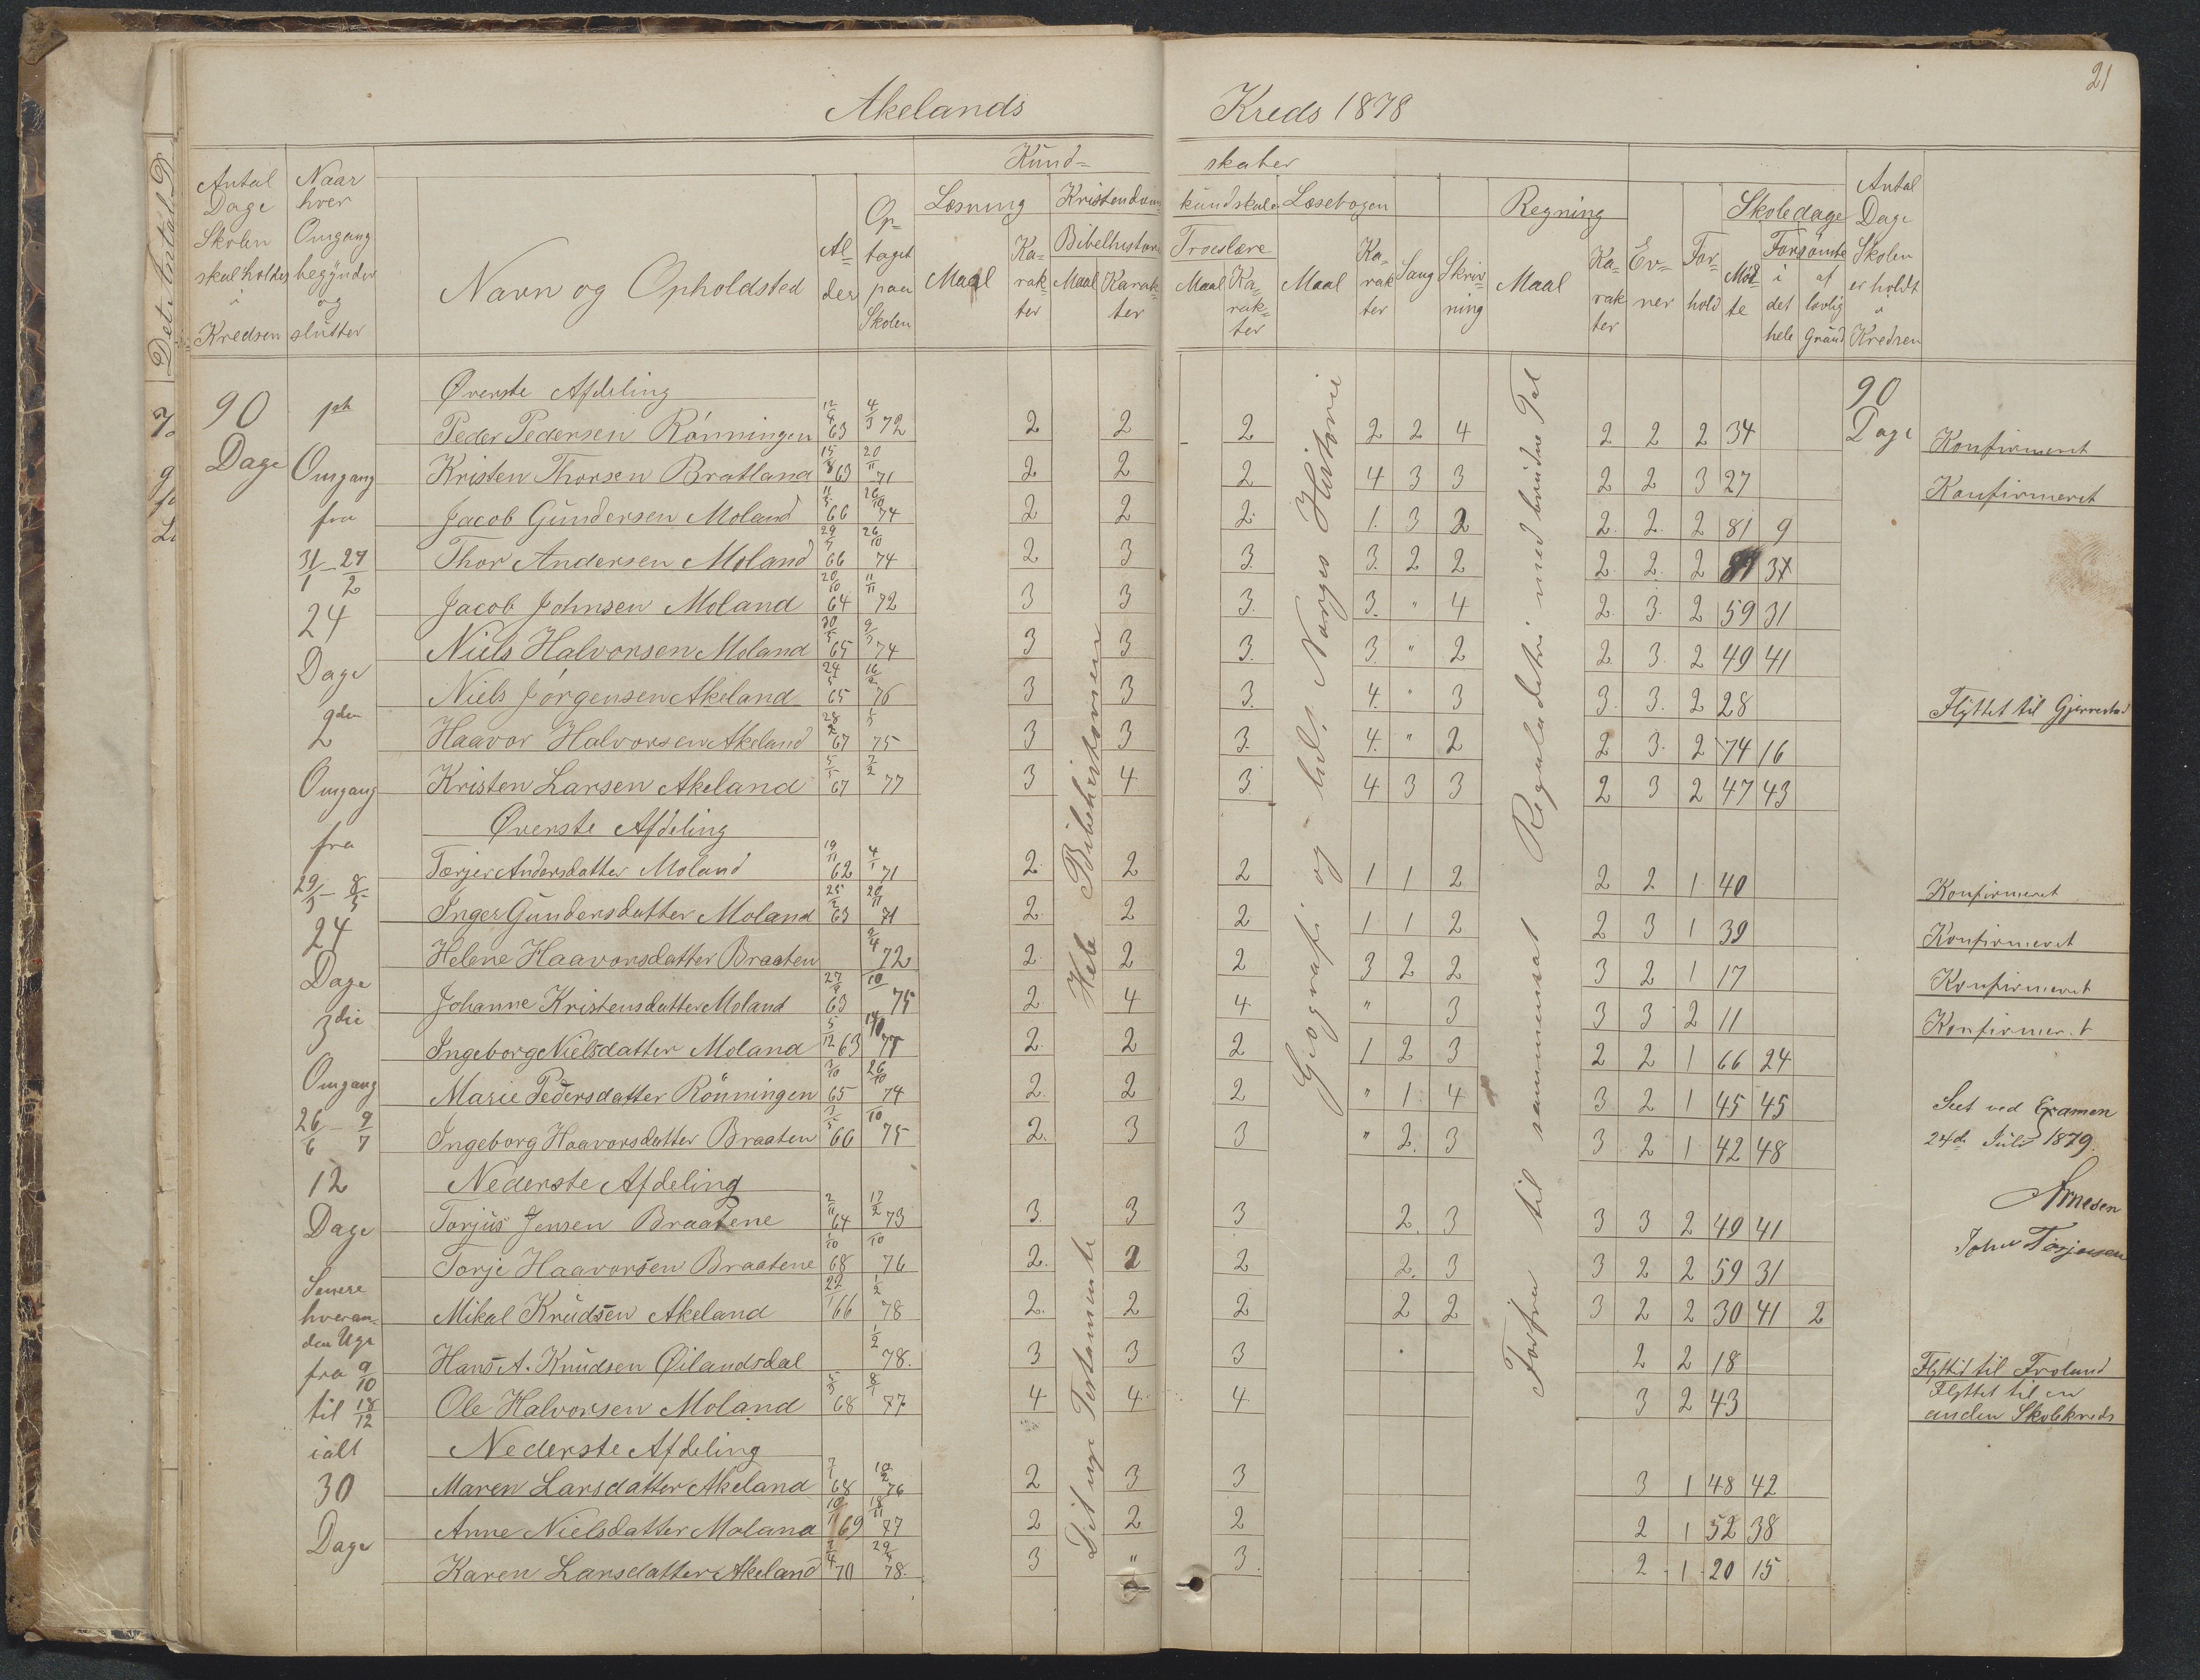 Akelands Kreds 1878
21
Kund- skaber
Antal Dage Skolen skal holdes i Kredsen
Naar hver Omgang begynder og slutter
Navn og Opholdsted
Al- der
Op- taget paa Skolen
Læsning
Maal
Ka- rak- ter
Kristendoms- kundskaber
Bibelhistorie
Maal Karak- ter
Troeslære
Maal Ka- rak- ter
Læsebogen
Maal
Ka- rak ter
Sang
Skriv- ning
Regning
Maal
Ka- rak ter
Ev- ner
For- hold
Skoledage
Mød- te
Forsømte
i det hele
af lovlig Grund
Antal Dage Skolen er holdt i Kredsen
90 Dage
1ste Omgang fra 31/1 - 27/2
24 Dage
2den Omgang fra 29/3 - 8/5
24 Dage
3die Omgang 26/6 - 9/7
12 Dage
Senere hveran- den Uge fra 9/10 til 18/12 ialt 30 Dage
Hele Bibelhistorien
Det nye Testamente
Geografi og hid. Norges Historie
Forfra til sammensat Reguladetri med brudne Tal
90 Dage
Øverste Afdeling
Peder Pedersen Rønningen 63 4/3 72 2 2 2 2 2 4 2 2 2 34 Konfirmeret
Kristen Thorsen Bratland 15/8 63 20/11 71 2 2 2 4 3 3 2 2 3 27 Konfirmeret
Jacob Gundersen Moland 11/5 66 26/10 74 2 2 2 1. 3 2 2. 2. 2 81 9
Thor Andersen Moland 66 26/10 74 2 3 3. 3. 2 2 2. 2. 2
Jacob Johnsen Moland 20/10 64 11/11 72 3 3 3. 3. " 4 2. 3. 2 59 31
Niels Halvorsen Moland 65 74 3 3 3. 3. " 2 2. 3. 2 49 41
Niels Jørgensen Akeland 65 16/2 76 3 3 3. 4. " 3 3. 3. 2 28 Flyttet til Gjerrestad
Haavor Halvorsen Akeland 67 75 3 3 3. 4. " 2 2 3. 2 74 16
Kristen Larsen Akeland 67 77 3 4 3 4 3 3 2 3 2 47 43
Øverste Afdeling
Torjer Andersdatter Moland 19/11 62 4/1 71 2 2 2 1 1 2 2 2 1 40 Konfirmeret
Inger Gundersdatter Moland 63 20/11 71 2 2 2 1 1 2 2 3 1 39 Konfirmeret
Helene Haavorsdatter Braaten 72 2 2 2 3 2 2 3 2 1 17 Konfirmeret
Johanne Kristensdatter Moland 63 10 75 2 4 4 " 3 3 3 2 11 Konfirmeret
Ingeborg Nielsdatter Moland 5/12 63 2 2 2 1 2 3 2 2 1 66 24
Marie Pedersdatter Rønningen 65 26/10 74 2 2 2 " 1 4 3 2 1 45 45
Ingeborg Haavorsdatter Braaten 66 10 75 2. 3 3 " 2. 3 3 2 1 42 48
Seet ved Examen
24de Juli 1879.
Arnesen
John Torjusen
Nederste Afdeling
Torjus Jensen Braatene 2/11 64 17/2 73 3. 3 3 2. 3 3 3 2 49 41
Torje Haavorsen Braatene 1/10 68 10 76 2. 2 2 2. 3 3 2 2 59 31
Mikal Knudsen Akeland 66 1/2 78 2. 2 2 2 2 3 2 2 30 41 2
Hans A. Knudsen Øilandsdal 1/2 78. 3 3 3 2 2 18 Flyttet til Froland
Ole Halvorsen Moland 68 8/1 77 4 4 4 3 2 43 Flyttet til en anden Skolekreds
Nederste Afdeling
Maren Larsdatter Akeland 68 76 2 3 3 3 1 48 42
Anne Nielsdatter Moland 69 18/11 77 2 2 2 2 1 52 38
Karen Larsdatter Akeland 70 78. 3 " 3. 2 1 20 15